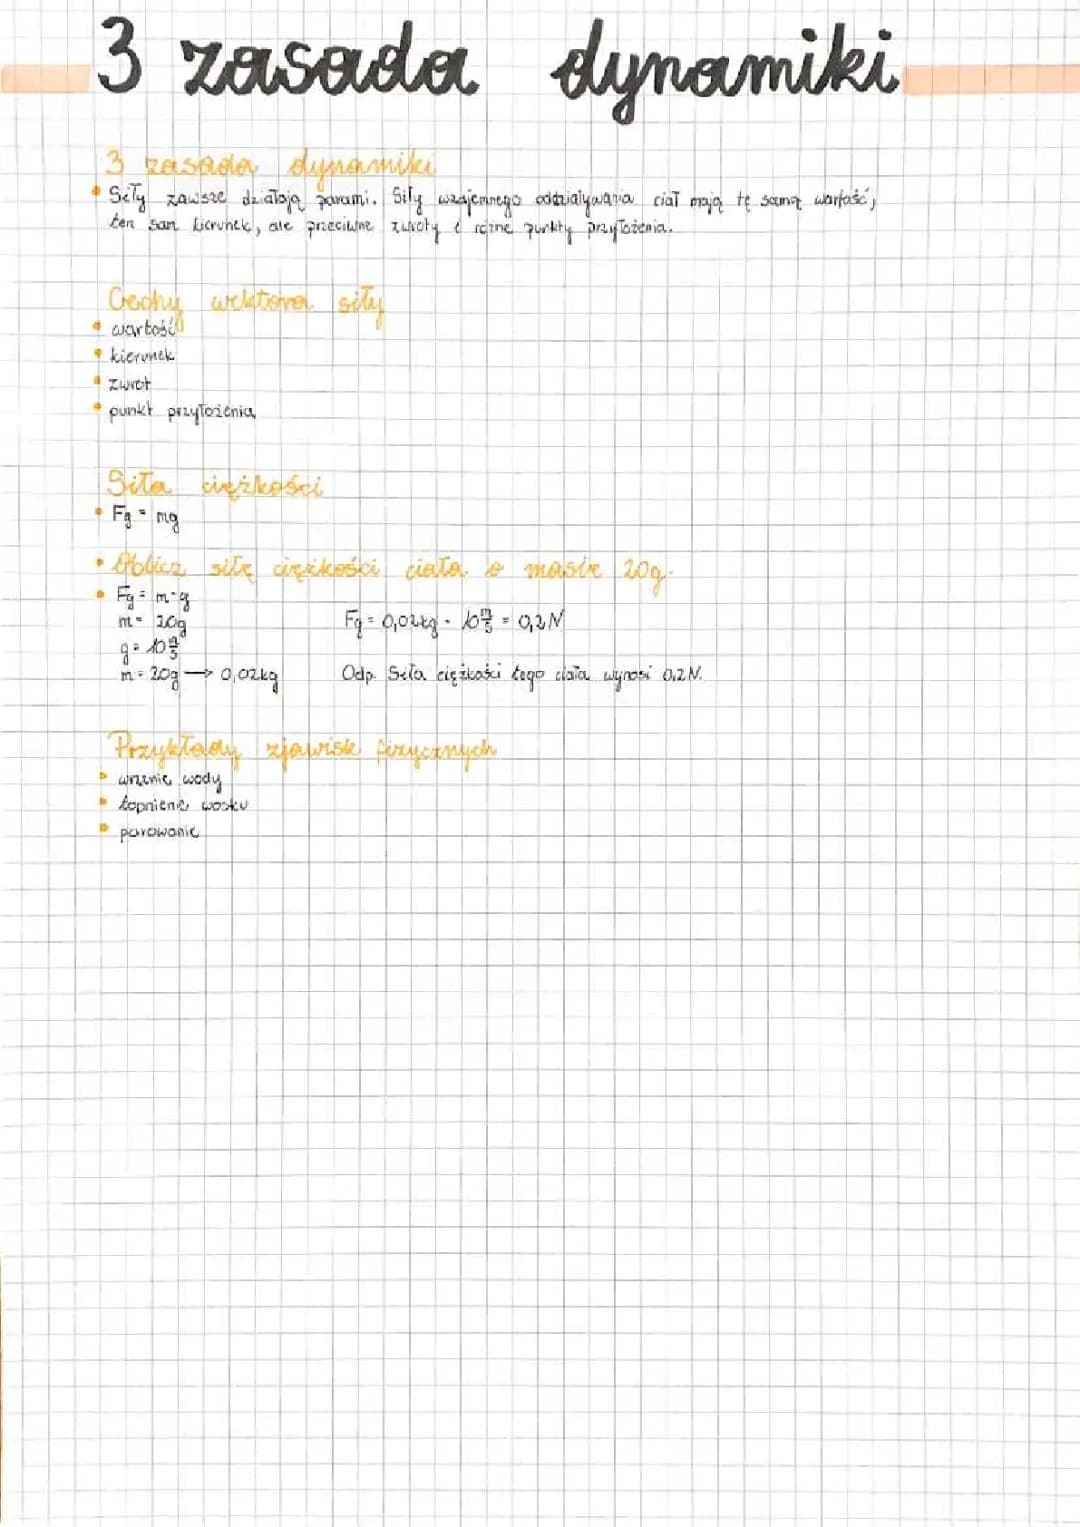 3 zasada dynamiki
3 zasada dynamiki
Siły zawsze działają parami. Siły wzajemnego oddziaływania ciał mają tę samą wartość,
ten sam kierunek, ale przeciwne zwroty i różne punkty przyłożenia.
Cechy wektora siły
wartość
kierunek
zwrot
punkt przyłożenia
Siła ciężkości
Fg = mg
Oblicz siłę ciężkości ciała o masie 20g.
Fg = m·g
m = 20g
Fg = 0,02kg · 10 m/s = 0,2N
g = 10 m/s
m = 20g → 0,02kg
Odp. Siła ciężkości tego ciała wynosi 0,2N.
Przykłady zjawisk fizycznych
wrzenie wody
topnienie wosku
parowanie